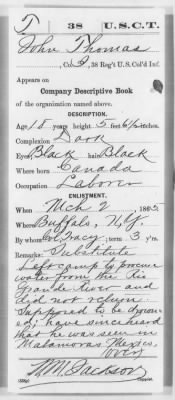 T | 38 | U.S.C.T.
John Thomas
, Co. I, 38 Reg't U.S. Col'd Inf.
Appears on
Company Descriptive Book
of the organization named above.
DESCRIPTION.
Age 18 years; height 5 feet 6½ inches.
Complexion Dark
Eyes Black; hair Black
Where born Canada
Occupation Laborer
ENLISTMENT.
When Mch 2, 1865.
Where Buffalo, N.Y.
By whom Col. Tracy; term 3 y'rs.
Remarks: Substitute
Left camp to procure
water from the Rio
Grande River and
did not return
Supposed to be drown
ed; have since heard
that he was seen in
Matamoras Mexico.
over
Jackson
Copyist.